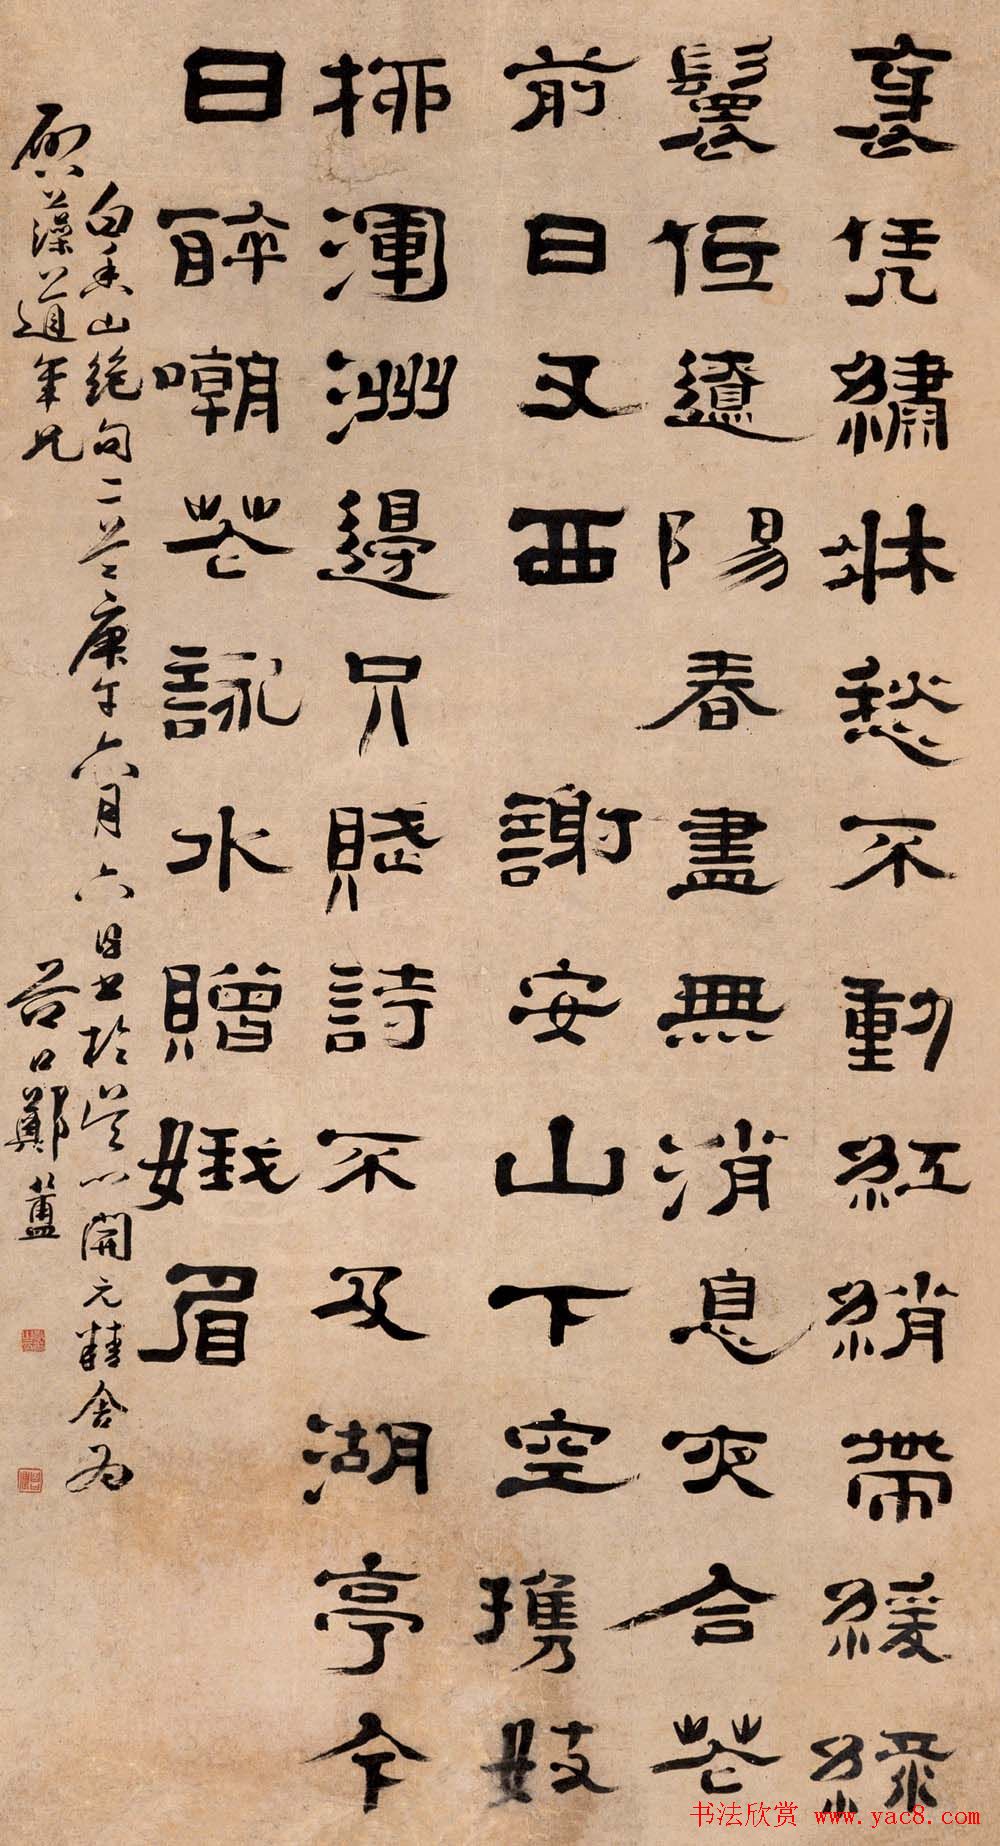 凭繡牀愁不動紅綃帶緩綠
鬟低遼陽春盡無消息夜合花
前日又西謝安山下空攜妓
柳渾洲邊只賦詩不及湖亭今
日醉嘲花詠水贈娥眉
白香山絕句二首庚午六月六日書於吳門開元精舍為
藻道年兄
谷口鄭簠
书法欣赏 www.yac8.com